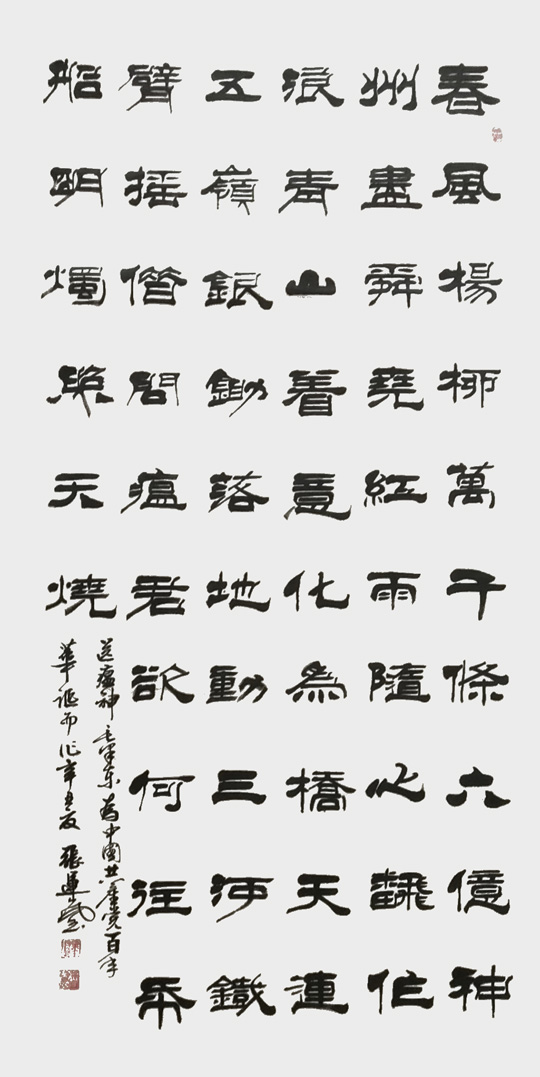 春風楊柳萬千條六億神
州盡舜堯紅雨隨心翻作
浪青山着意化為橋天連
五嶺銀鋤落地動三河鐵
臂摇借問瘟君欲何往帋
船明燭照天燒
送瘟神毛澤东為中國共產党百年
華诞而作辛丑夏張運